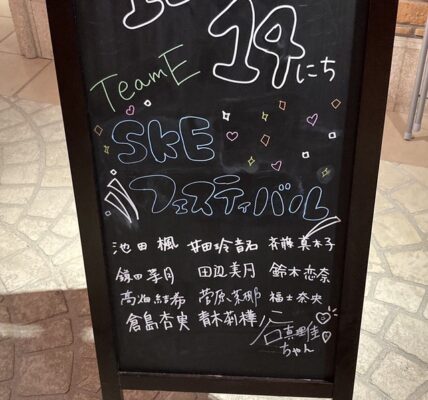 14にち
TeamE
SKE
フェスティバル
池田楓 井田玲音名 斉藤真木子
鎌田菜月 田辺美月 鈴木恋奈
高畑結希 菅原茉椰 福士奈央
倉島杏実 青木莉樺 谷真理佳
ちゃん